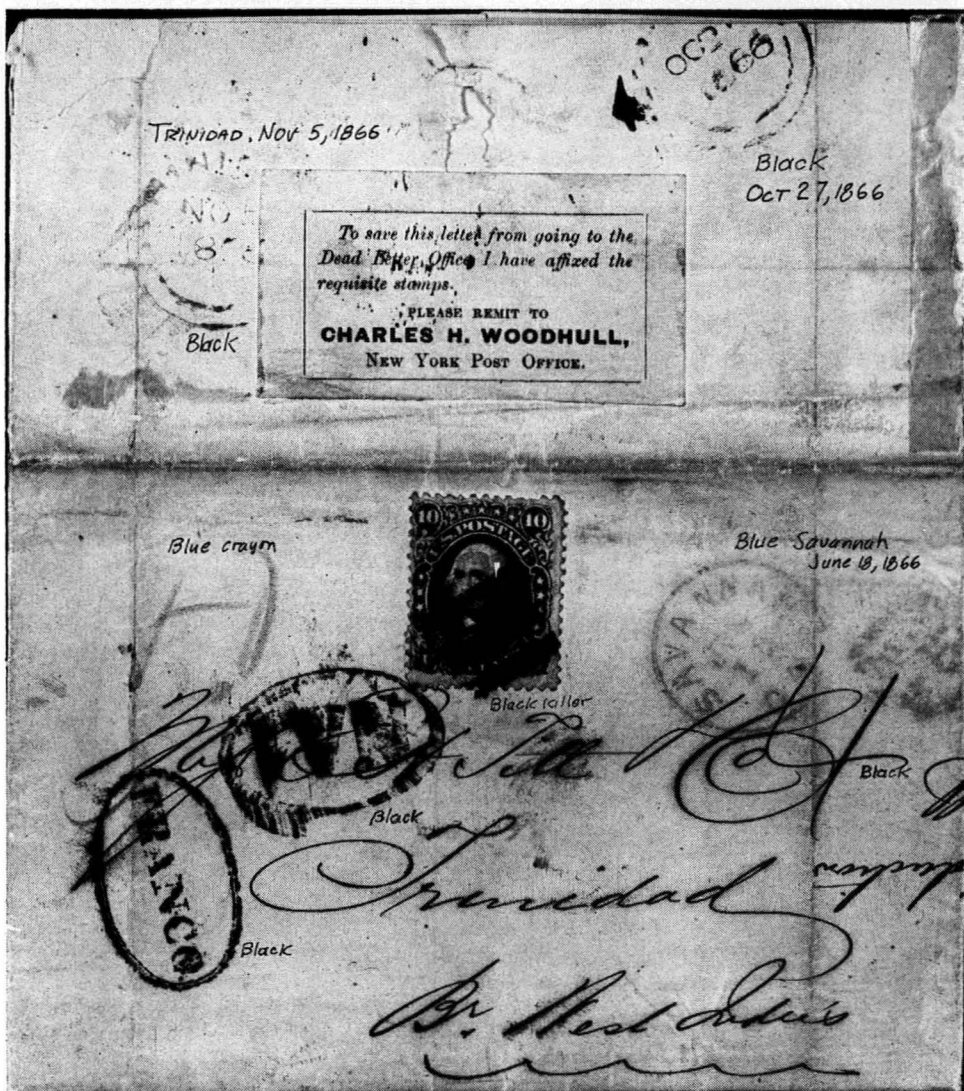 OCT
1866
TRINIDAD, NOV 5, 1866
Black
OCT 27, 1866
NO
8
To save this letter from going to the
Dead Letter Office I have affixed the
requisite stamps.
PLEASE REMIT TO
CHARLES H. WOODHULL,
NEW YORK POST OFFICE.
Black
10 10
U.S. POSTAGE
Blue crayon
Blue Savannah
June 18, 1866
SAVANNAH
Black killer
Black
Black
FRANCO
Trinidad
Black
Br. West Indies